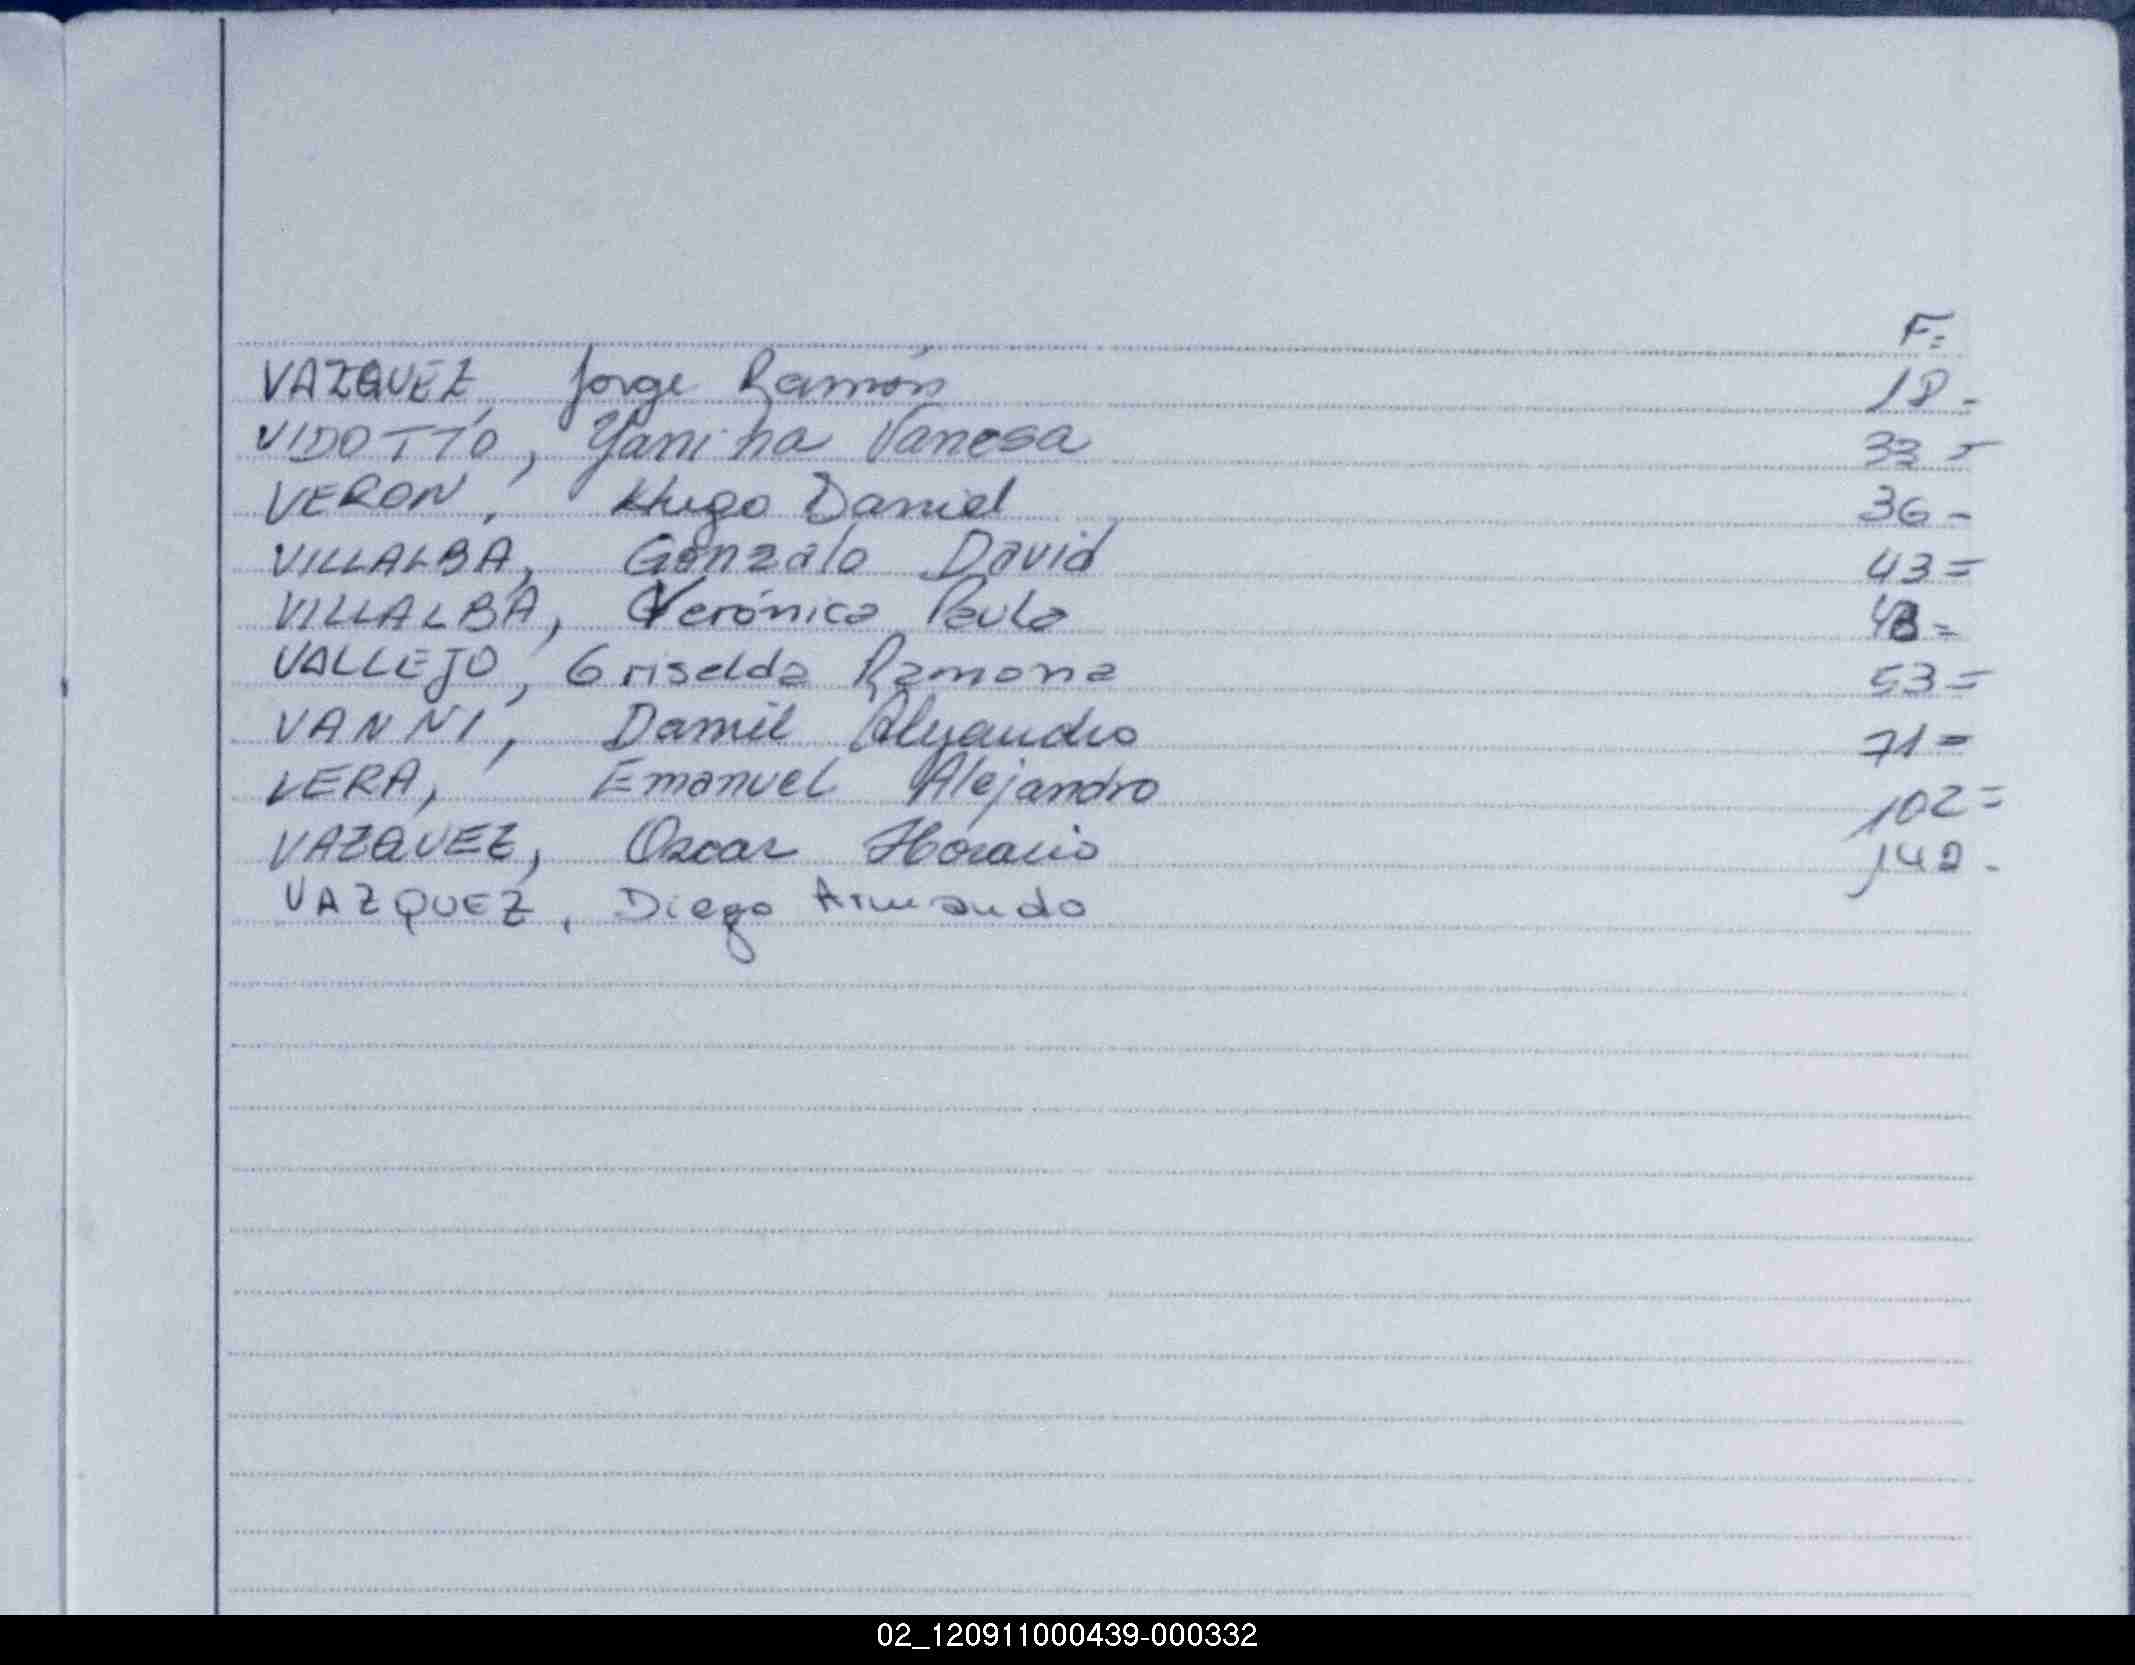 F=
VAZQUEZ, Jorge Ramón 18-
VIDOTTO, Yanina Vanesa 33=
VERON, Hugo Daniel 36-
VILLALBA, Gonzalo David 43=
VILLALBA, Verónica Paula =
VALLEJO, Griselda Ramona 53=
VANNI, Daniel Alejandro 71=
VERA, Emanuel Alejandro 102=
VAZQUEZ, Oscar Horacio
VAZQUEZ, Diego Armando
02_120911000439-000332